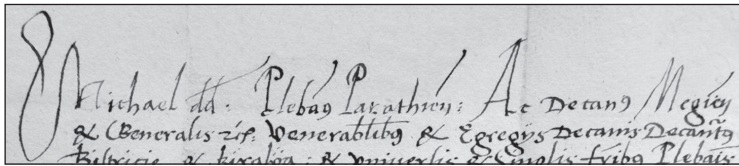 Michael dd: Plebanꝰ Parathien: Ac Decanꝰ Megien
& Generalis &c: Venerabilibꝰ & Egregijs Decanis Decanatꝰ
Bistricie & Kiralÿa: & vniuersis & singulis fribꝰ Plebanis